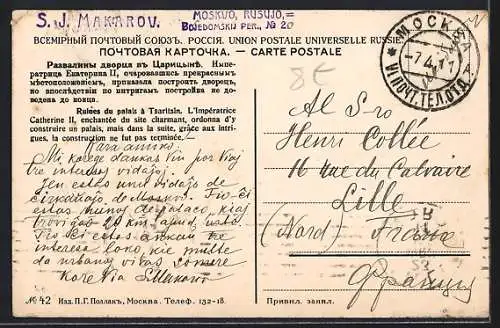 S. J. MAKAROV.
MOSKVO, RUSUJO,=
BOJEDOMSKIJ PER., № 20
ВСЕМІРНЫЙ ПОЧТОВЫЙ СОЮЗЪ. РОССІЯ. UNION POSTALE UNIVERSELLE RUSSIE.
ПОЧТОВАЯ КАРТОЧКА. – CARTE POSTALE
МОСКВА
-7.4.11
VI ПОЧТ. ТЕЛ. ОТД.
8€
Развалины дворца въ Царицынѣ. Импе-
ратрица Екатерина II, очаровавшись прекраснымъ
мѣстоположеніемъ, приказала построить дворецъ,
но впослѣдствіи по интригамъ постройка не до-
ведена до конца.
Ruines du palais à Tsaritsin. L'Impératrice
Catherine II, enchantée du site charmant, ordonna d'y
construire un palais, mais dans la suite, grâce aux intri-
gues, la construction ne fut pas terminée.
Kara amiko!
Mi kore dankas Vin por Viaj
tre interesaj vidaĵoj.
Jen estas unu vidaĵo de
ĉirkaŭaĵo de Moskvo. Tio-ĉi
estas ruinoj de palaco, kiaj
troviĝas 20 km. apud urbo
Tio ĉi estas ankaŭ tre
interesa loko, kie multe
da urbanoj vivas somere
Kore Via SMakarov
Al Sro
Henri Collée
16 rue du Calvaire
Lille
(Nord) France
Франція
№ 42 Изд. П. Г. Поллакъ, Москва. Телеф. 132-18.
Привил. заявл.